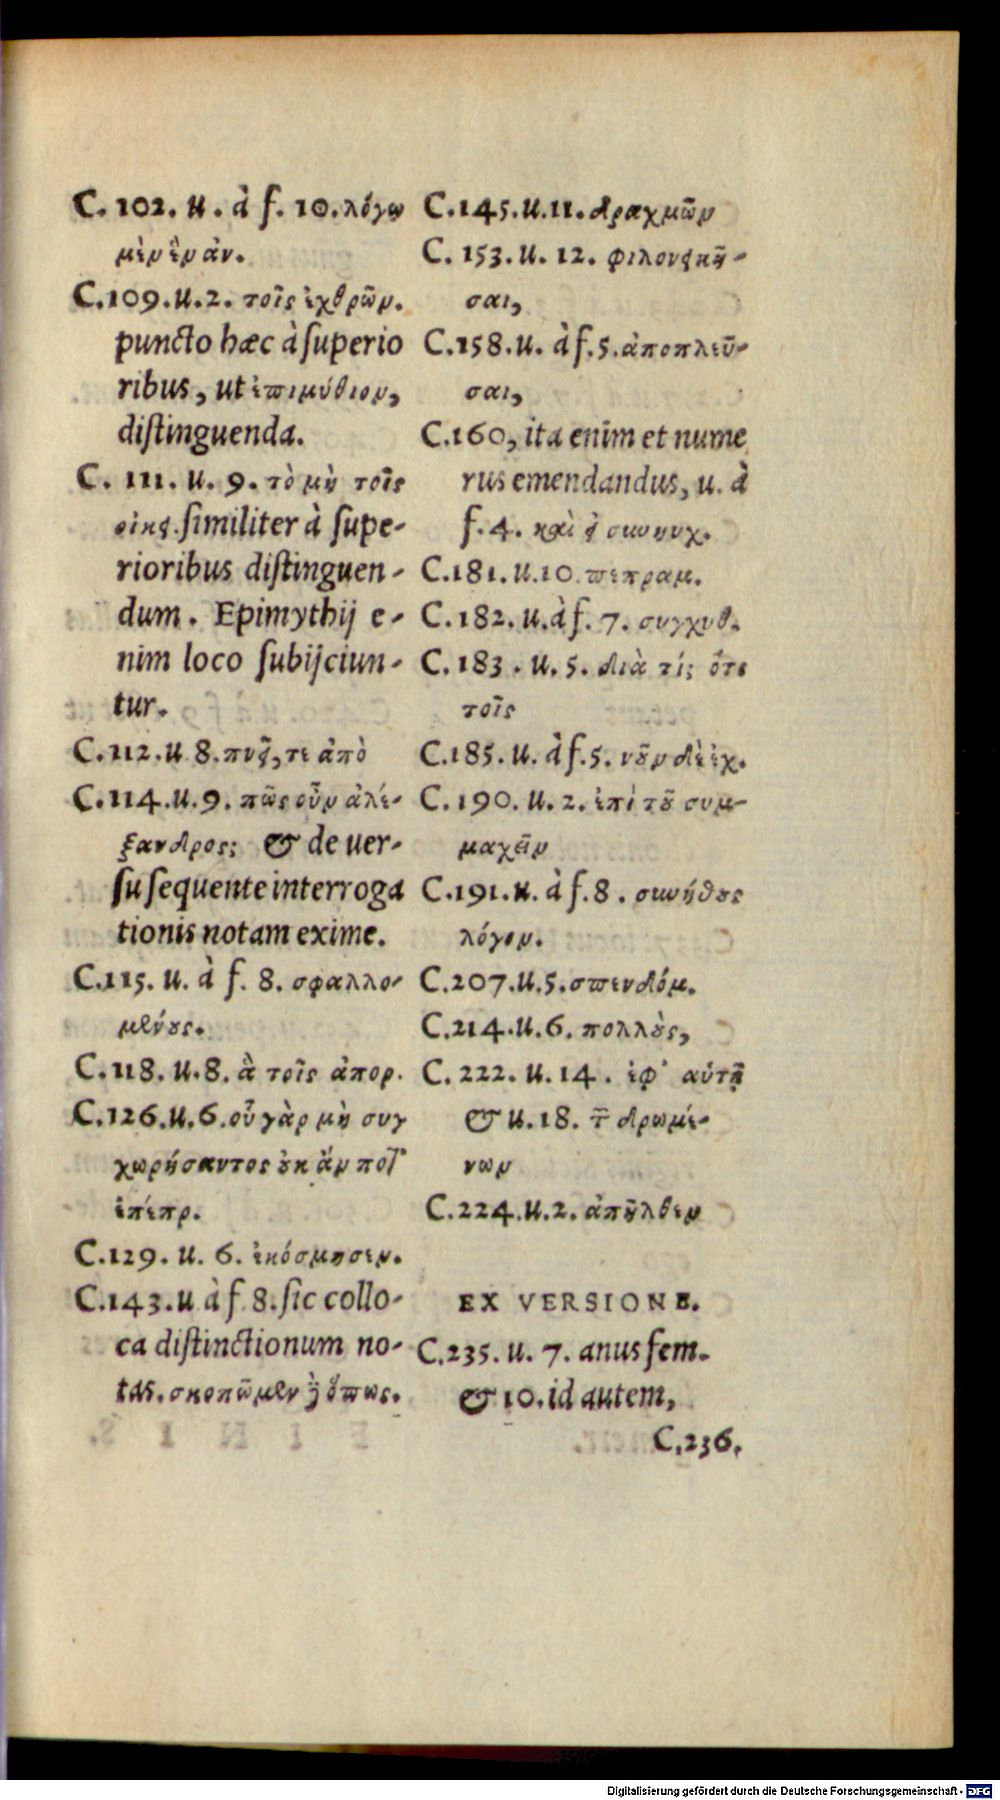 C. 102. u. à f. 10. λόγῳ
μὲν ἓν ἀν.
C.109.u.2. τοῖς ἐχθρῶν.
puncto hæc à superio
ribus, ut ἐπιμύθιον,
distinguenda.
C. 111. u. 9. τὸ μὴ τοῖς
οἰκει. similiter à supe-
rioribus distinguen-
dum. Epimythij e-
nim loco subijciun-
tur.
C.112.u 8. τε ἀπὸ
C.114.u.9. πῶς οὖν ἀλέ-
ξανδρος; & de uer-
su sequente interroga
tionis notam exime.
C.115. u. à f. 8. σφαλλο-
μένους.
C.118. u.8. ἃ τοῖς ἀπορ.
C.126.u.6. οὐ γὰρ μὴ συγ
χωρήσαντος οὐκ ἄν ποτ᾽
ἐπέπρ.
C.129. u. 6. ἐκόσμησεν.
C.143.u à f 8. sic collo-
ca distinctionum no-
tas. σκοπῶμεν ὅπως.
C.145.u.11. δραχμῶν
C. 153. u. 12. φιλονεικῆ-
σαι,
C.158.u. à f.5. ἀποπλεῦ-
σαι,
C.160, ita enim et nume
rus emendandus, u. à
f. 4. καὶ
C.181.u.10. πέπραμ.
C.182. u. à f. 7. συγχυθ.
C.183. u. 5. διὰ τί; ὅτι
τοῖς
C.185. u. à f.5. νοῦν δὲ ἐχ.
C. 190. u. 2. ἐπὶ τοῦ συμ-
μαχεῖν
C.191.u. à f.8. συνήθους
λόγον.
C.207.u.5. σπενδόμ.
C.214.u.6. πολλοὺς,
C. 222. u. 14. ἐφ᾽ αὑτῇ
& u. 18. τῶν δρωμέ-
νων
C.224.u.2. ἀπῆλθεν
EX VERSIONE.
C.235. u. 7. anus fem.
& 10. id autem,
C.236.
Digitalisierung gefördert durch die Deutsche Forschungsgemeinschaft - DFG